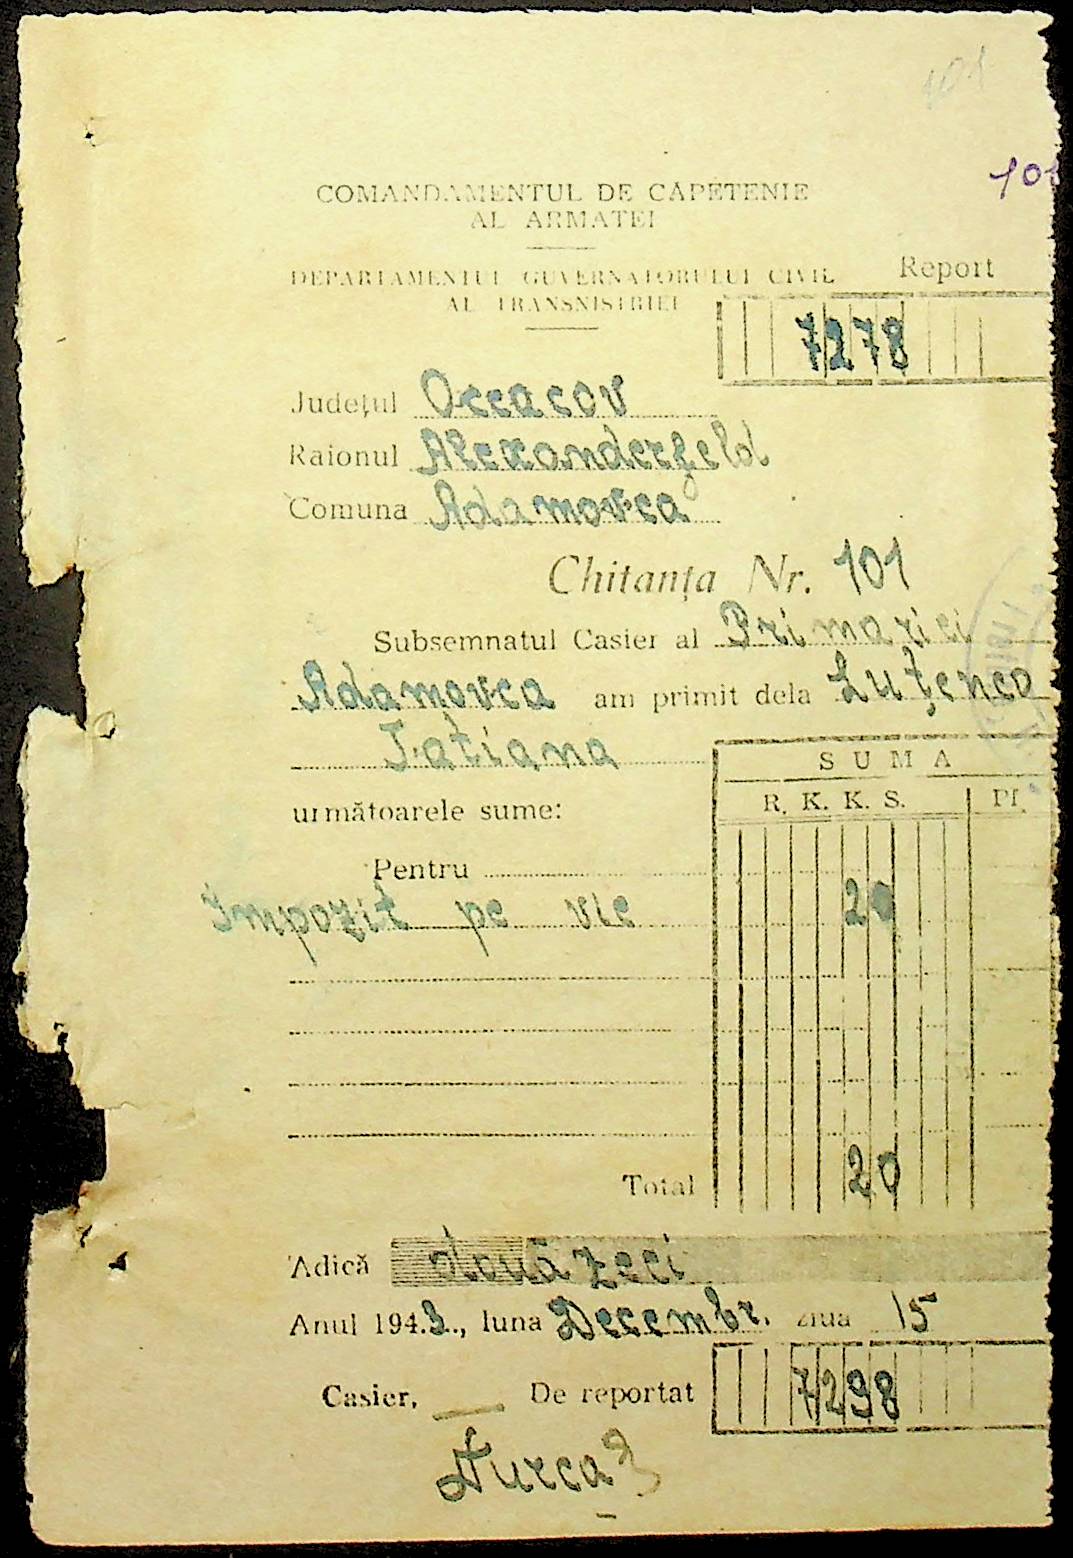 101
101
COMANDAMENTUL DE CAPETENIE
AL ARMATEI
DEPARTAMENTUL GUVERNATORULUI CIVIL
AL TRANSNISTRIEI
Report
7278
Județul Oceacov
Raionul Alexanderfeld
Comuna Adamovca
Chitanța Nr. 101
Subsemnatul Casier al Primariei
Adamovca am primit dela Luțenco
Tatiana
următoarele sume:
SUMA
R. K. K. S. Pf.
Pentru
Impozit pe vie 20
Total 20
Adică două zeci
Anul 194.3., luna Decembr. ziua 15
Casier, De reportat 7298